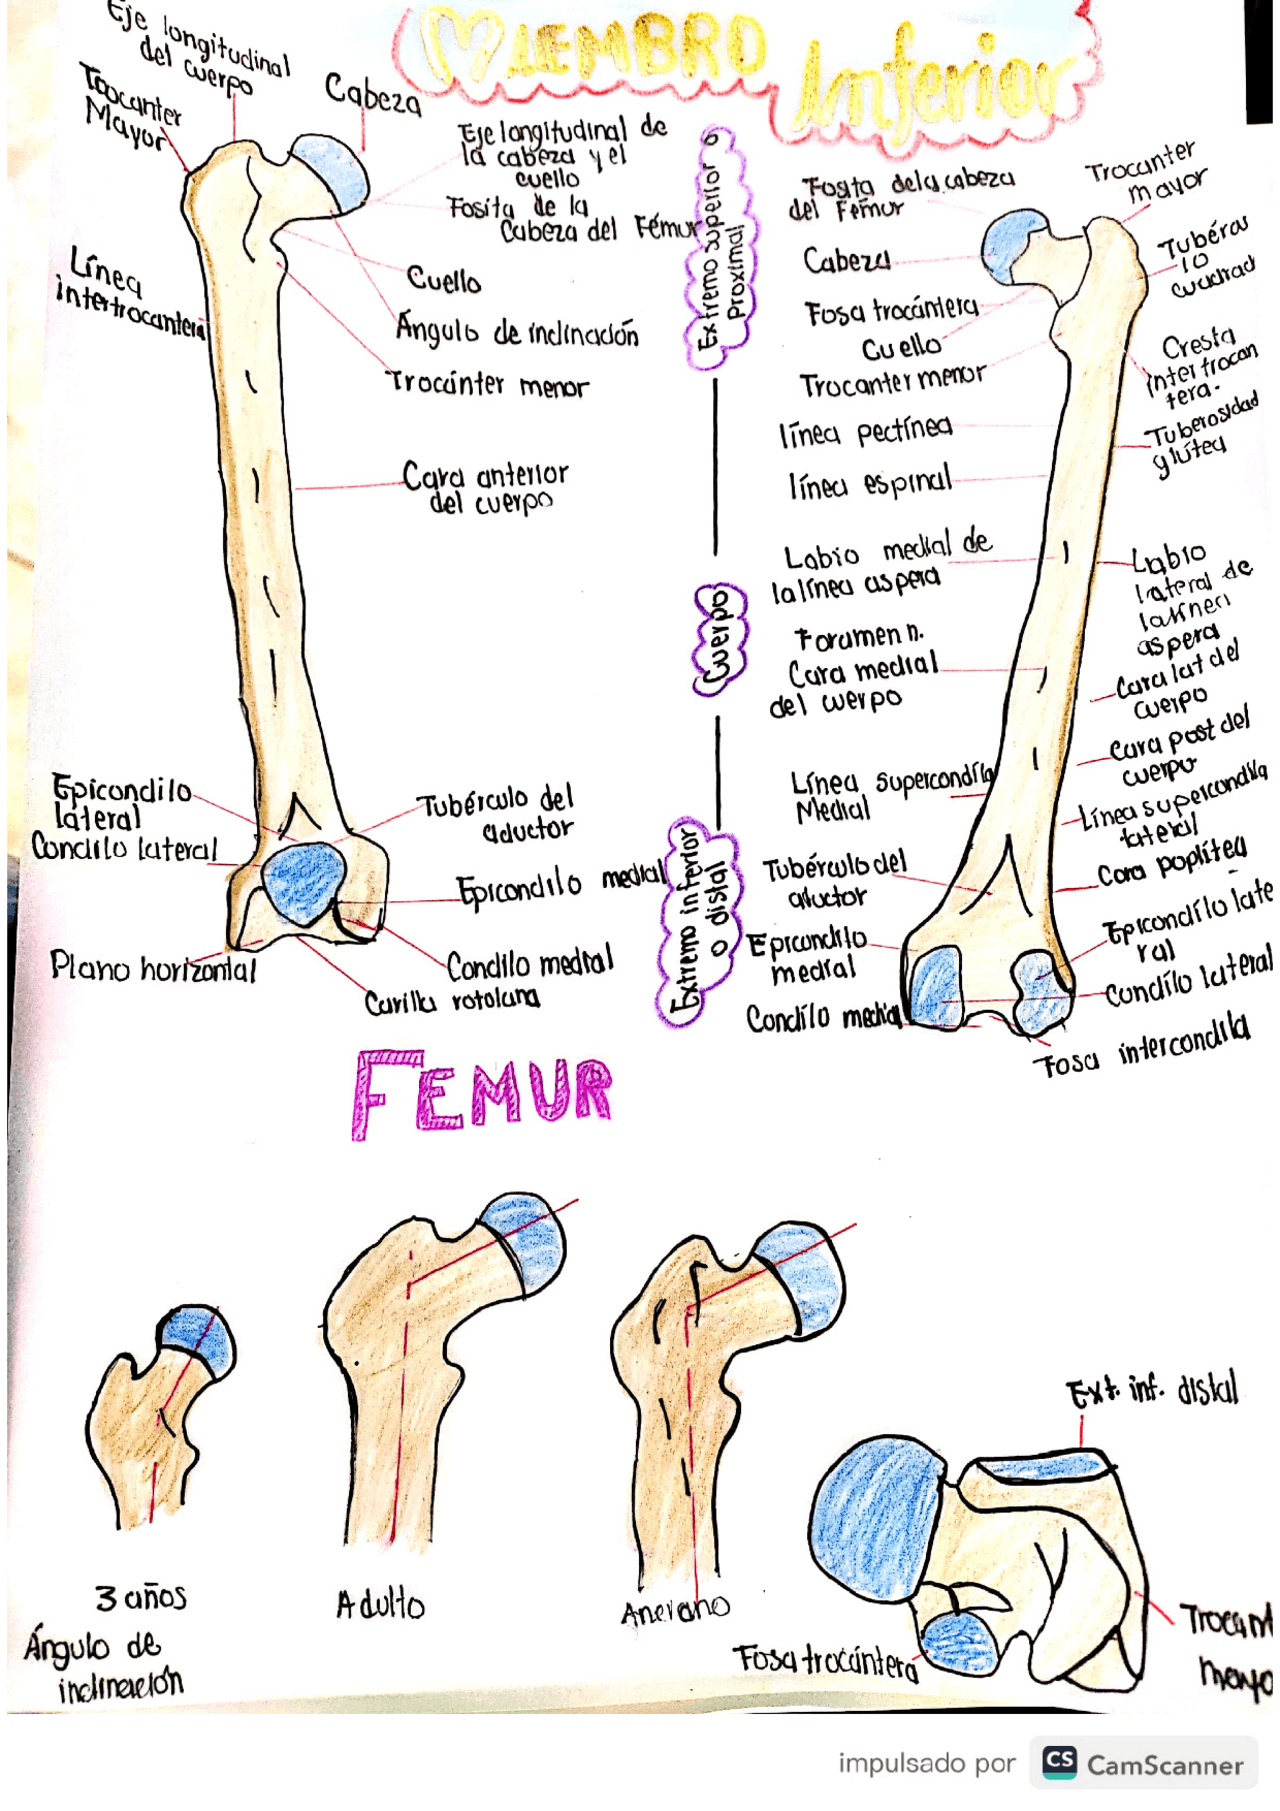 MIEMBRO Inferior
Eje longitudinal
del cuerpo
Trocanter
Mayor
Cabeza
Eje longitudinal de
la cabeza y el
cuello
Fosita de la
Cabeza del Fémur
Cuello
Línea
intertrocantera
Ángulo de inclinación
Trocánter menor
Cara anterior
del cuerpo
Epicondilo
lateral
Condilo lateral
Tubérculo del
aductor
Epicondilo medial
Plano horizontal
Condilo medial
Carilla rotoliana
Extremo superior o
Proximal
Cuerpo
Extremo inferior
o distal
Fosita dela cabeza
del Fémur
Cabeza
Fosa trocántera
Cuello
Trocanter menor
línea pectínea
línea espinal
Labio medial de
la línea aspera
Foramen n.
Cara medial
del cuerpo
Línea supercondíla
Medial
Tubérculo del
aductor
Epicondilo
medial
Condílo medial
Trocanter
mayor
Tubércu
lo
cuadrad
Cresta
intertrocan
tera.
Tuberosidad
glútea
Labio
lateral de
la línea
aspera
Cara lat del
cuerpo
Cara post del
cuerpo
Línea supercondíla
lateral
Cara poplítea
Epicondílo late
ral
Condílo lateral
Fosa intercondíla
FEMUR
3 años
Ángulo de
inclinación
Adulto
Anciano
Ext. inf. distal
Fosa trocántera
Trocant
mayo
impulsado por CS CamScanner